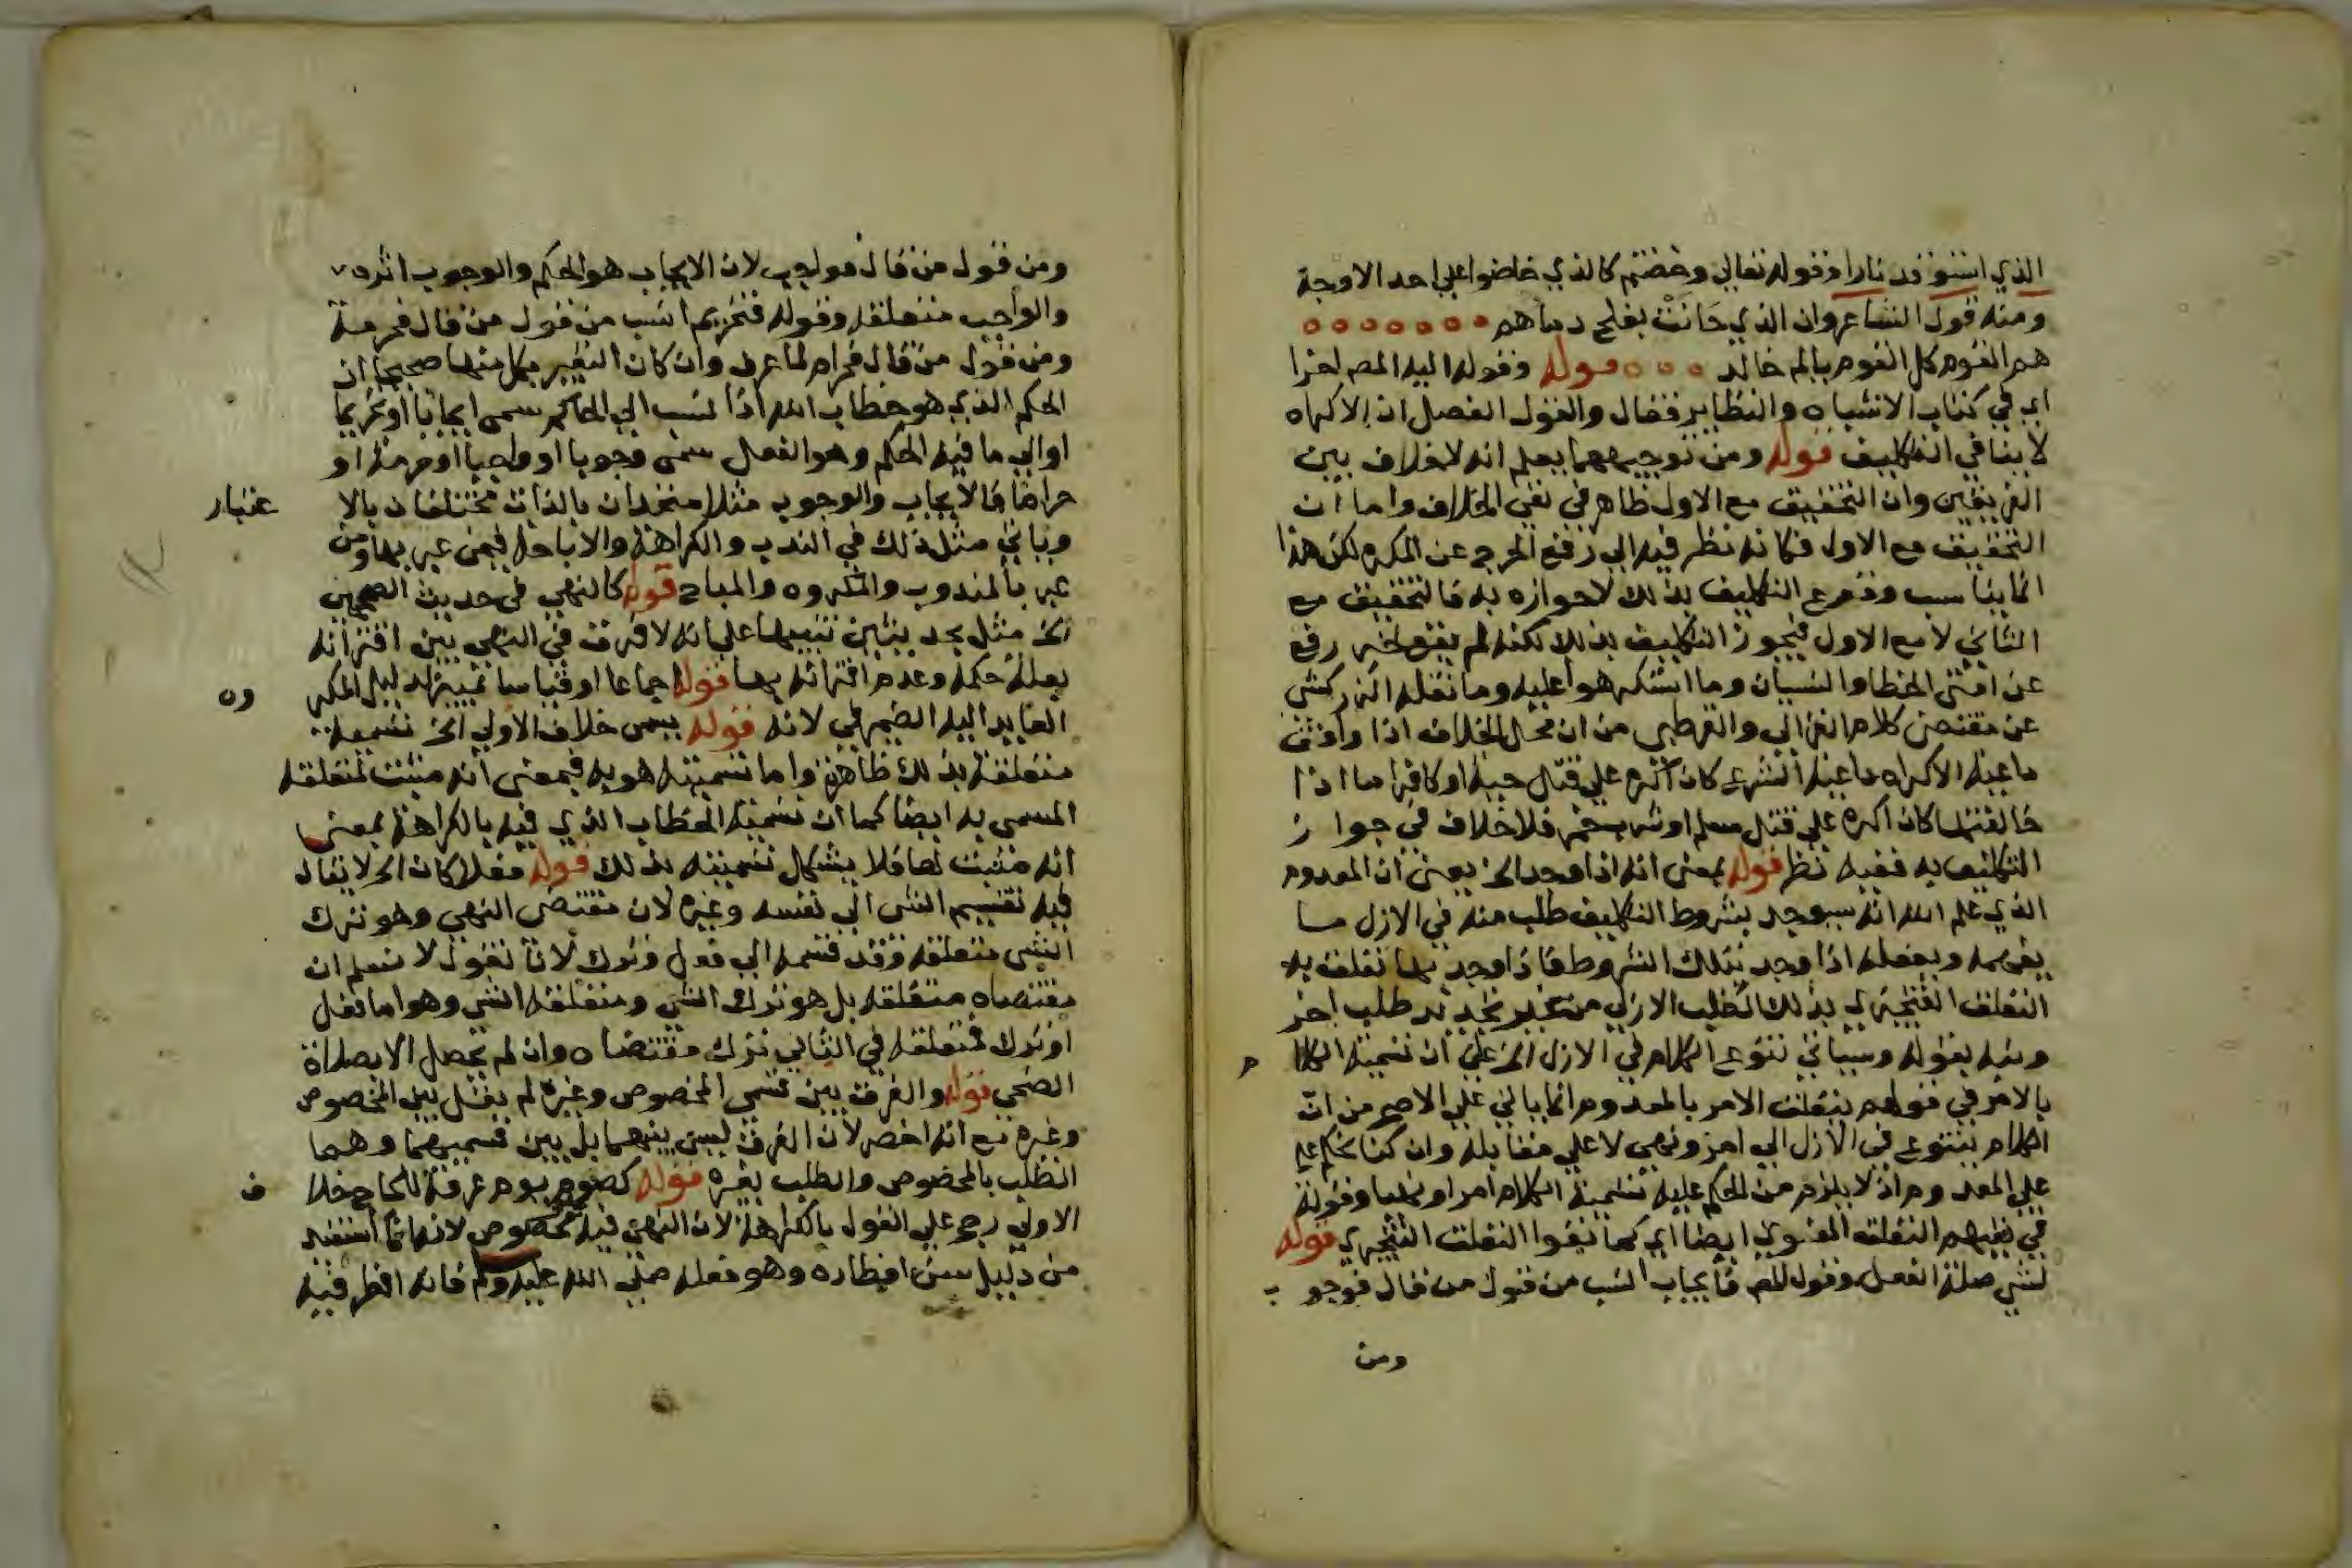 الذي استوقد نارا وقوله تعالي وخضتم كالذي خاضوا علي احد الاوجة
ومنه قول الشاعر وان الذي حَانَتْ بفلج دماهم
هم القوم كل القوم يا ام خالد قوله وقوله اليه المص اخرا
اي في كتاب الاشباه والنظاير فقال والقول الفصل ان الاكراه
لا ينافي التكليف قوله ومن توجيههما يعلم انه لا خلاف بين
الفريقين وان التحقيق مع الاول ظاهر في نفي الخلاف واما ان
التحقيق مع الاول فكانه نظر فيه الي رفع الحرج عن المكره لكن هذا
انما يناسب وقوع التكليف بذلك لا جوازه به فالتحقيق مع
الثاني لا مع الاول فيجوز التكليف بذلك لكنه لم يقع لخبر رفع
عن امتي الخطا والنسيان وما استكرهوا عليه وما نقله الزركشي
عن مقتضي كلام الغزالي والقرطبي من ان محل الخلاف اذا وافق
داعية الاكراه داعية الشرع كان اكره علي قتل حية او كافر اما اذا
خالفتها كان اكره علي قتل مسلم او شرب خمر فلا خلاف في جواز
التكليف به ففيه نظر قوله بمعني انه اذا وجد الخ يعني ان المعدوم
الذي علم الله انه سيوجد بشروط التكليف طلب منه في الازل ما
يفهمه ويفعله اذا وجد بتلك الشروط فاذا وجد بها تعلق به
التعلق التنجيزي بذلك الطلب الازلي من غير تجدد طلب اخر
ونبه بقوله وسياتي تنوع الكلام في الازل الخ علي ان تسمية الكلام
بالامر في قولهم يتعلق الامر بالمعدوم انما ياتي علي الاصح من ان
الكلام يتنوع في الازل الي امر ونهي لا علي مقابله وان كنا نحكم عليه
علي المعدوم اذ لا يلزم من الحكم عليه تسمية الكلام امرا ونهيا وقوله
في نفيهم التعلق المعنوي ايضا اي كما نفوا التعلق التنجيزي قوله
لشي صلة الفعل وقول المص فايجاب انسب من قول من قال فوجوب
ومن
ومن قول من قال فواجب لان الايجاب هو الحكم والوجوب اثره
والواجب متعلقه وقوله فتحريم انسب من قول من قال فحرمة
ومن قول من قال فحرام لما عرف وان كان التعبير بكل منها صحيحا ان
الحكم الذي هو خطاب الله اذا نسب الي الحاكم سمي ايجابا او تحريما
او الي ما فيه الحكم وهو الفعل سمي وجوبا او واجبا او حرمة او
حراما فالايجاب والوجوب مثلا متحدان بالذات مختلفان بالاعتبار
وياتي مثل ذلك في الندب والكراهة والاباحة فيمن عبر بها ومن
عبر بالمندوب والمكروه والمباح قوله كالنهي في حديث الصحيحين
الخ مثل بحديثين تنبيها علي انه لا فرق في النهي بين اقترانه
بعلة حكمه وعدم اقترانه بها قوله اجماعا او قياسا تمييز لدليل المكروه
العايد اليه الضمير في لانه قوله يسمي خلاف الاولي الخ تسمية
متعلقة بذلك ظاهرة واما تسميته هو به فبمعني انه مثبت لمتعلقه
المسمي به ايضا كما ان تسمية الخطاب الذي فيه بالكراهة بمعني
انه مثبت لها فلا يشكل تسميته بذلك قوله فعلا كان الخ لا يقال
فيه تقسيم الشي الي نفسه وغيره لان مقتضي النهي وهو ترك
الشي متعلقه وقد قسمه الي فعل وترك لانا نقول لا نسلم ان
مقتضاه متعلقه بل هو ترك الشي ومتعلقه الشي وهو اما فعل
او ترك فمتعلقه في الثاني ترك مقتضاه وان لم يحصل الا بصلاة
الضحي قوله والفرق بين قسمي المخصوص وغيره لم يقل بين المخصوص
وغيره مع انه اخصر لان الفرق ليس بينهما بل بين قسميهما وهما
الطلب بالمخصوص والطلب بغيره قوله كصوم يوم عرفة للحاج خلاف
الاولي رجح علي القول بالكراهة لان النهي فيه مخصوص لانها انما استفيد
من دليل سن افطاره وهو فعله صلي الله عليه وسلم فانه افطر فيه